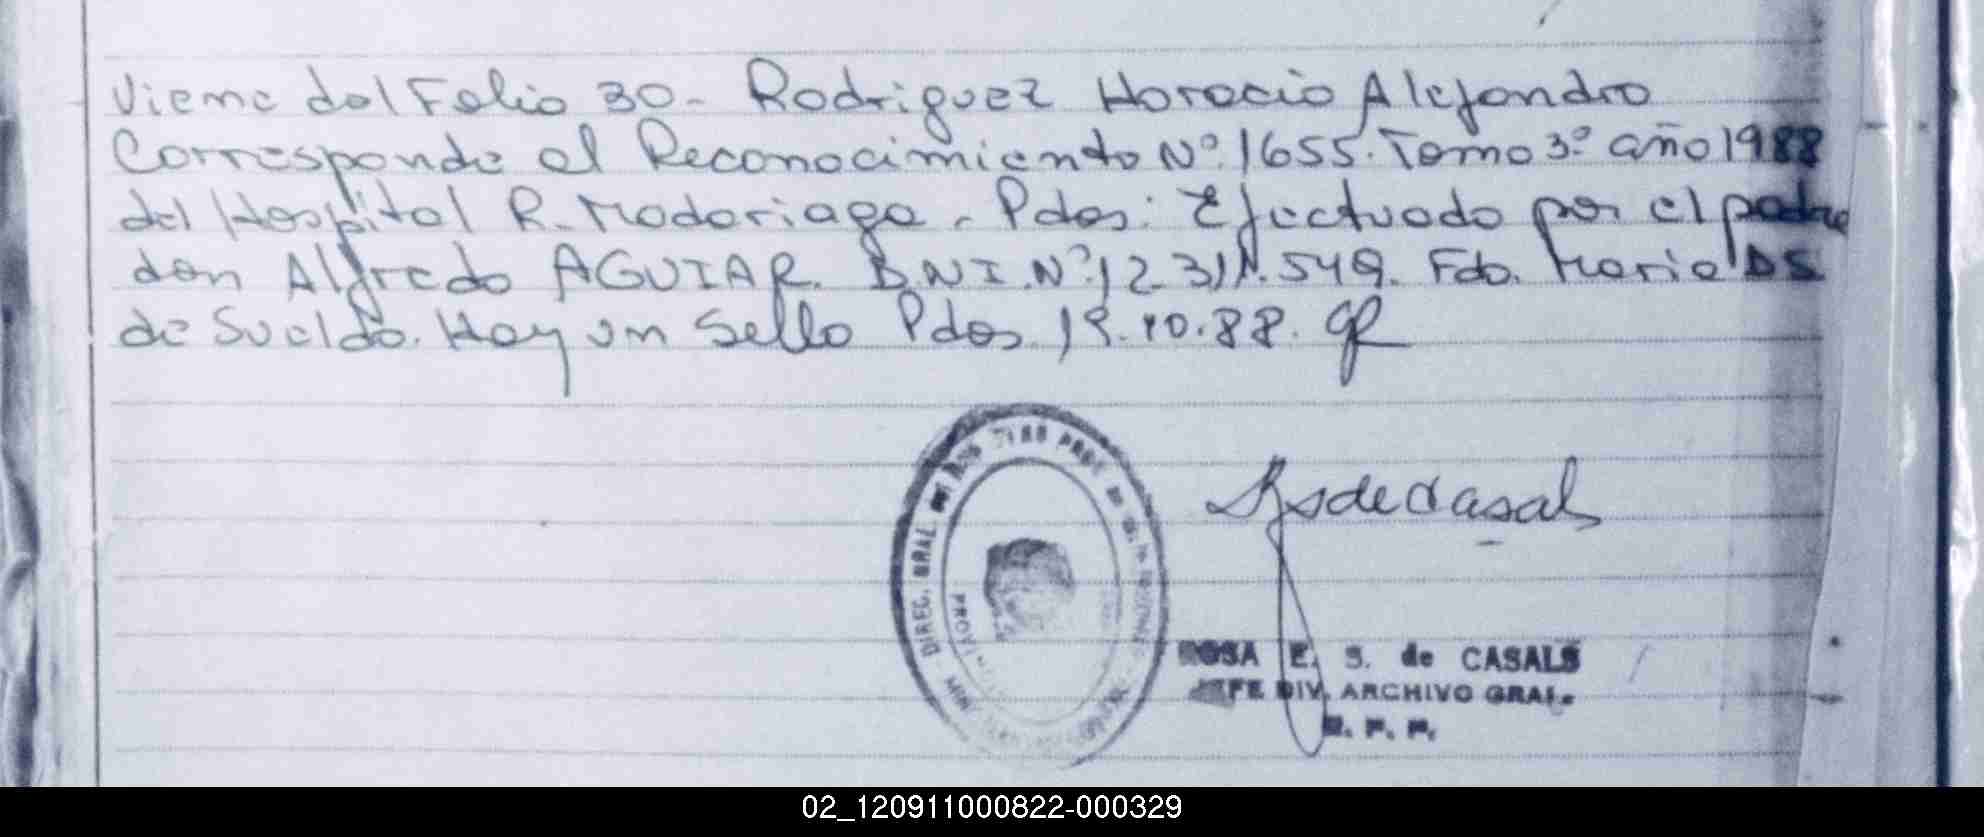 Viene del Folio 30- Rodriguez Horacio Alejandro
Corresponde al Reconocimiento Nº.1655. Tomo 3º año 1988
del Hospital R. Madariaga. Pdas: Efectuado por el padre
don Alfredo AGUIAR. D.N.I. Nº 12.311.549. Fdo. Maria DS
de Sueldo. Hay un Sello Pdas 19.10.88. GR
DIREC. GRAL
PROV.
RsdeCasals
ROSA E. S. de CASALS
JEFE DIV. ARCHIVO GRAL.
02_120911000822-000329